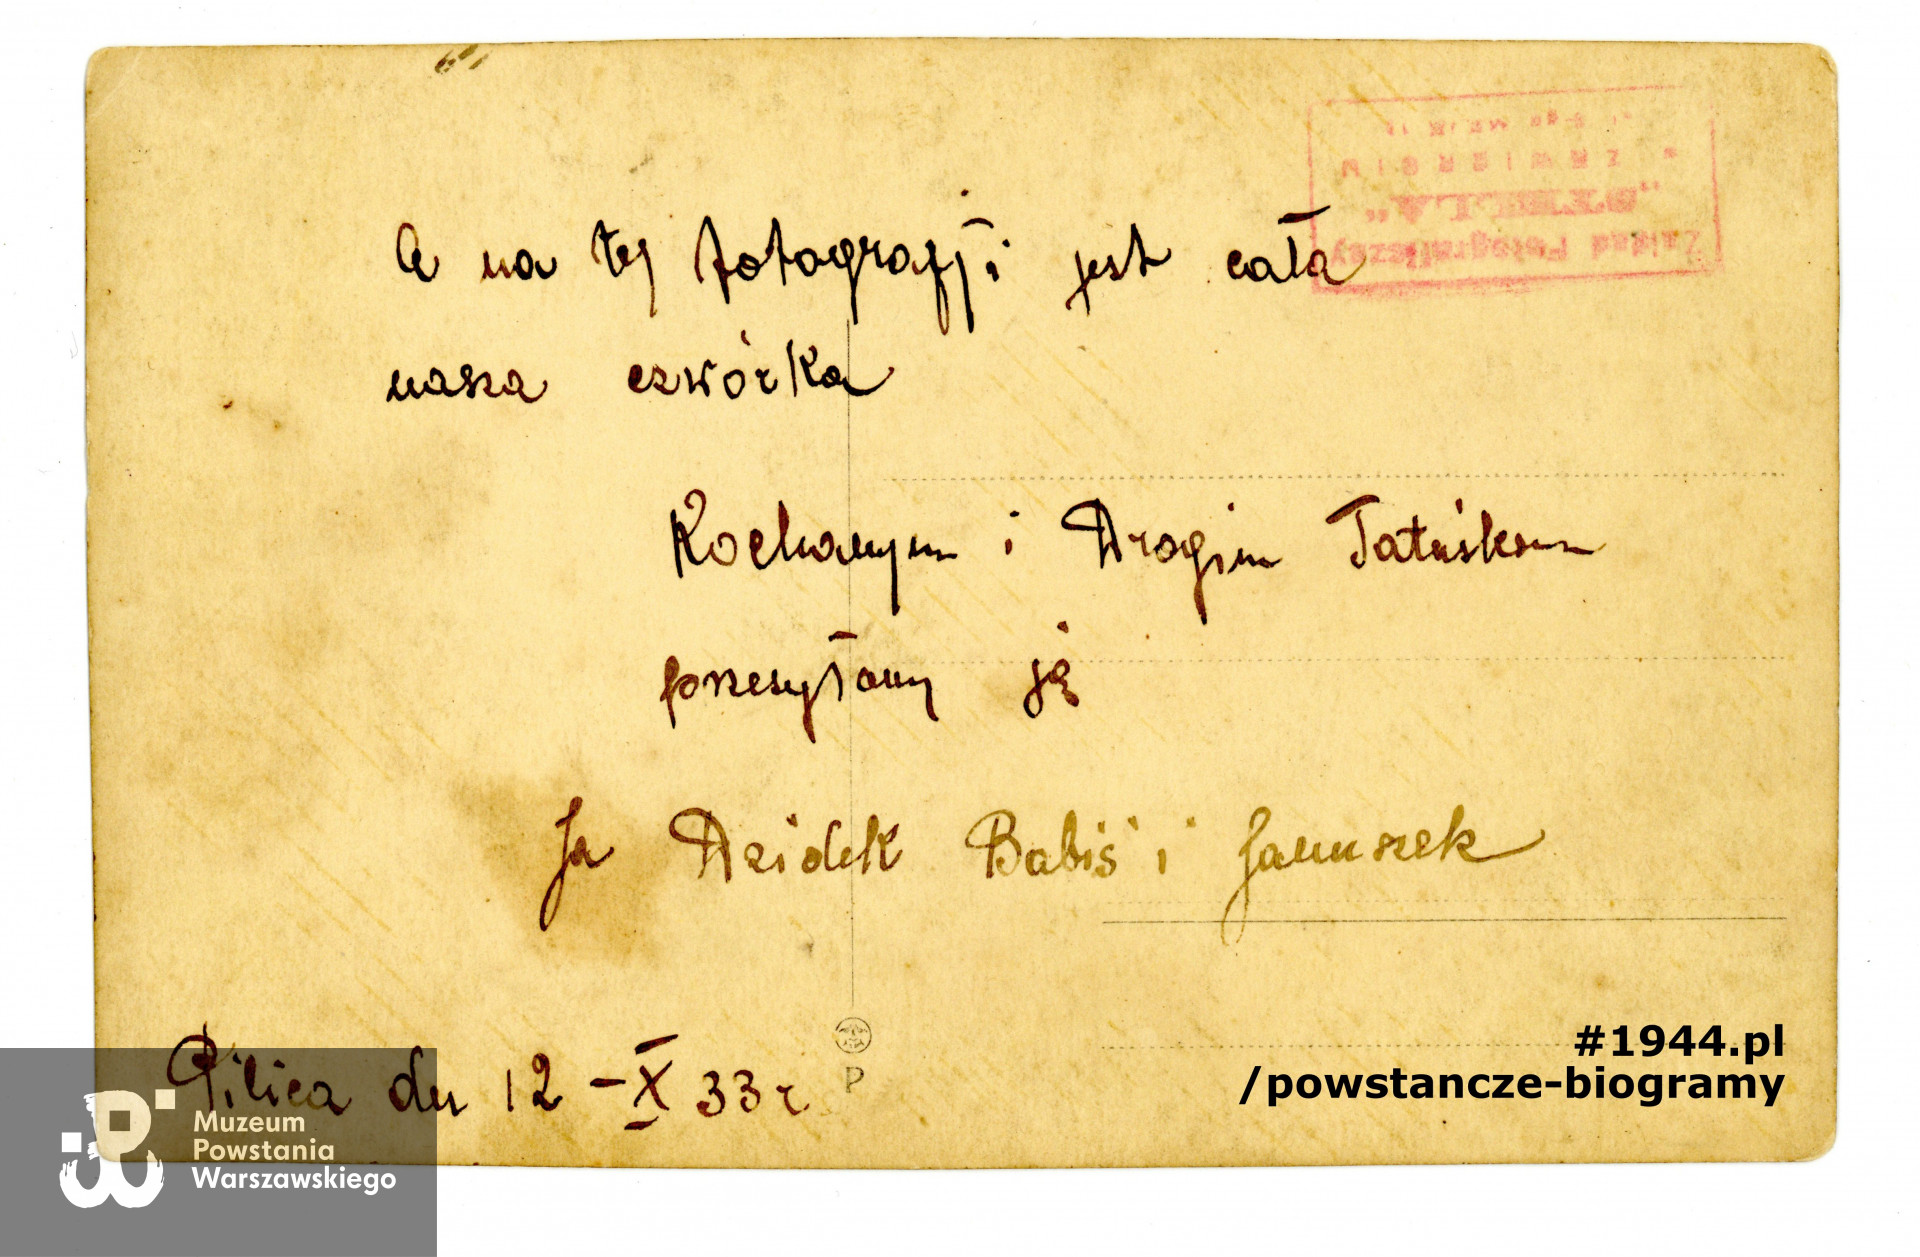 Zakład Fotograficzny
"STELLA"
A na tej fotografji jest cała
nasza czwórka
Kochanym i Drogim Tatuśkom
przesyłamy ją
Ja Dzidek Babiś i Januszek
Pilica dn 12 - X 33 r
P
#1944.pl
/powstancze-biogramy
Muzeum
Powstania
Warszawskiego